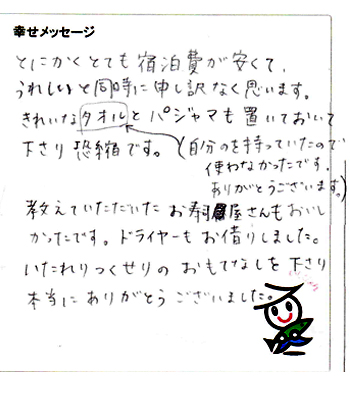 幸せメッセージ
とにかくとても宿泊費が安くて、
うれしいと同時に申し訳なく思います。
きれいなタオルとパジャマも置いておいて
下さり恐縮です。(自分のを持っていたので
使わなかったです。
ありがとうございます。)
教えていただいたお寿屋さんもおいし
かったです。ドライヤーもお借りしました。
いたれりつくせりのおもてなしを下さり
本当にありがとうございました。